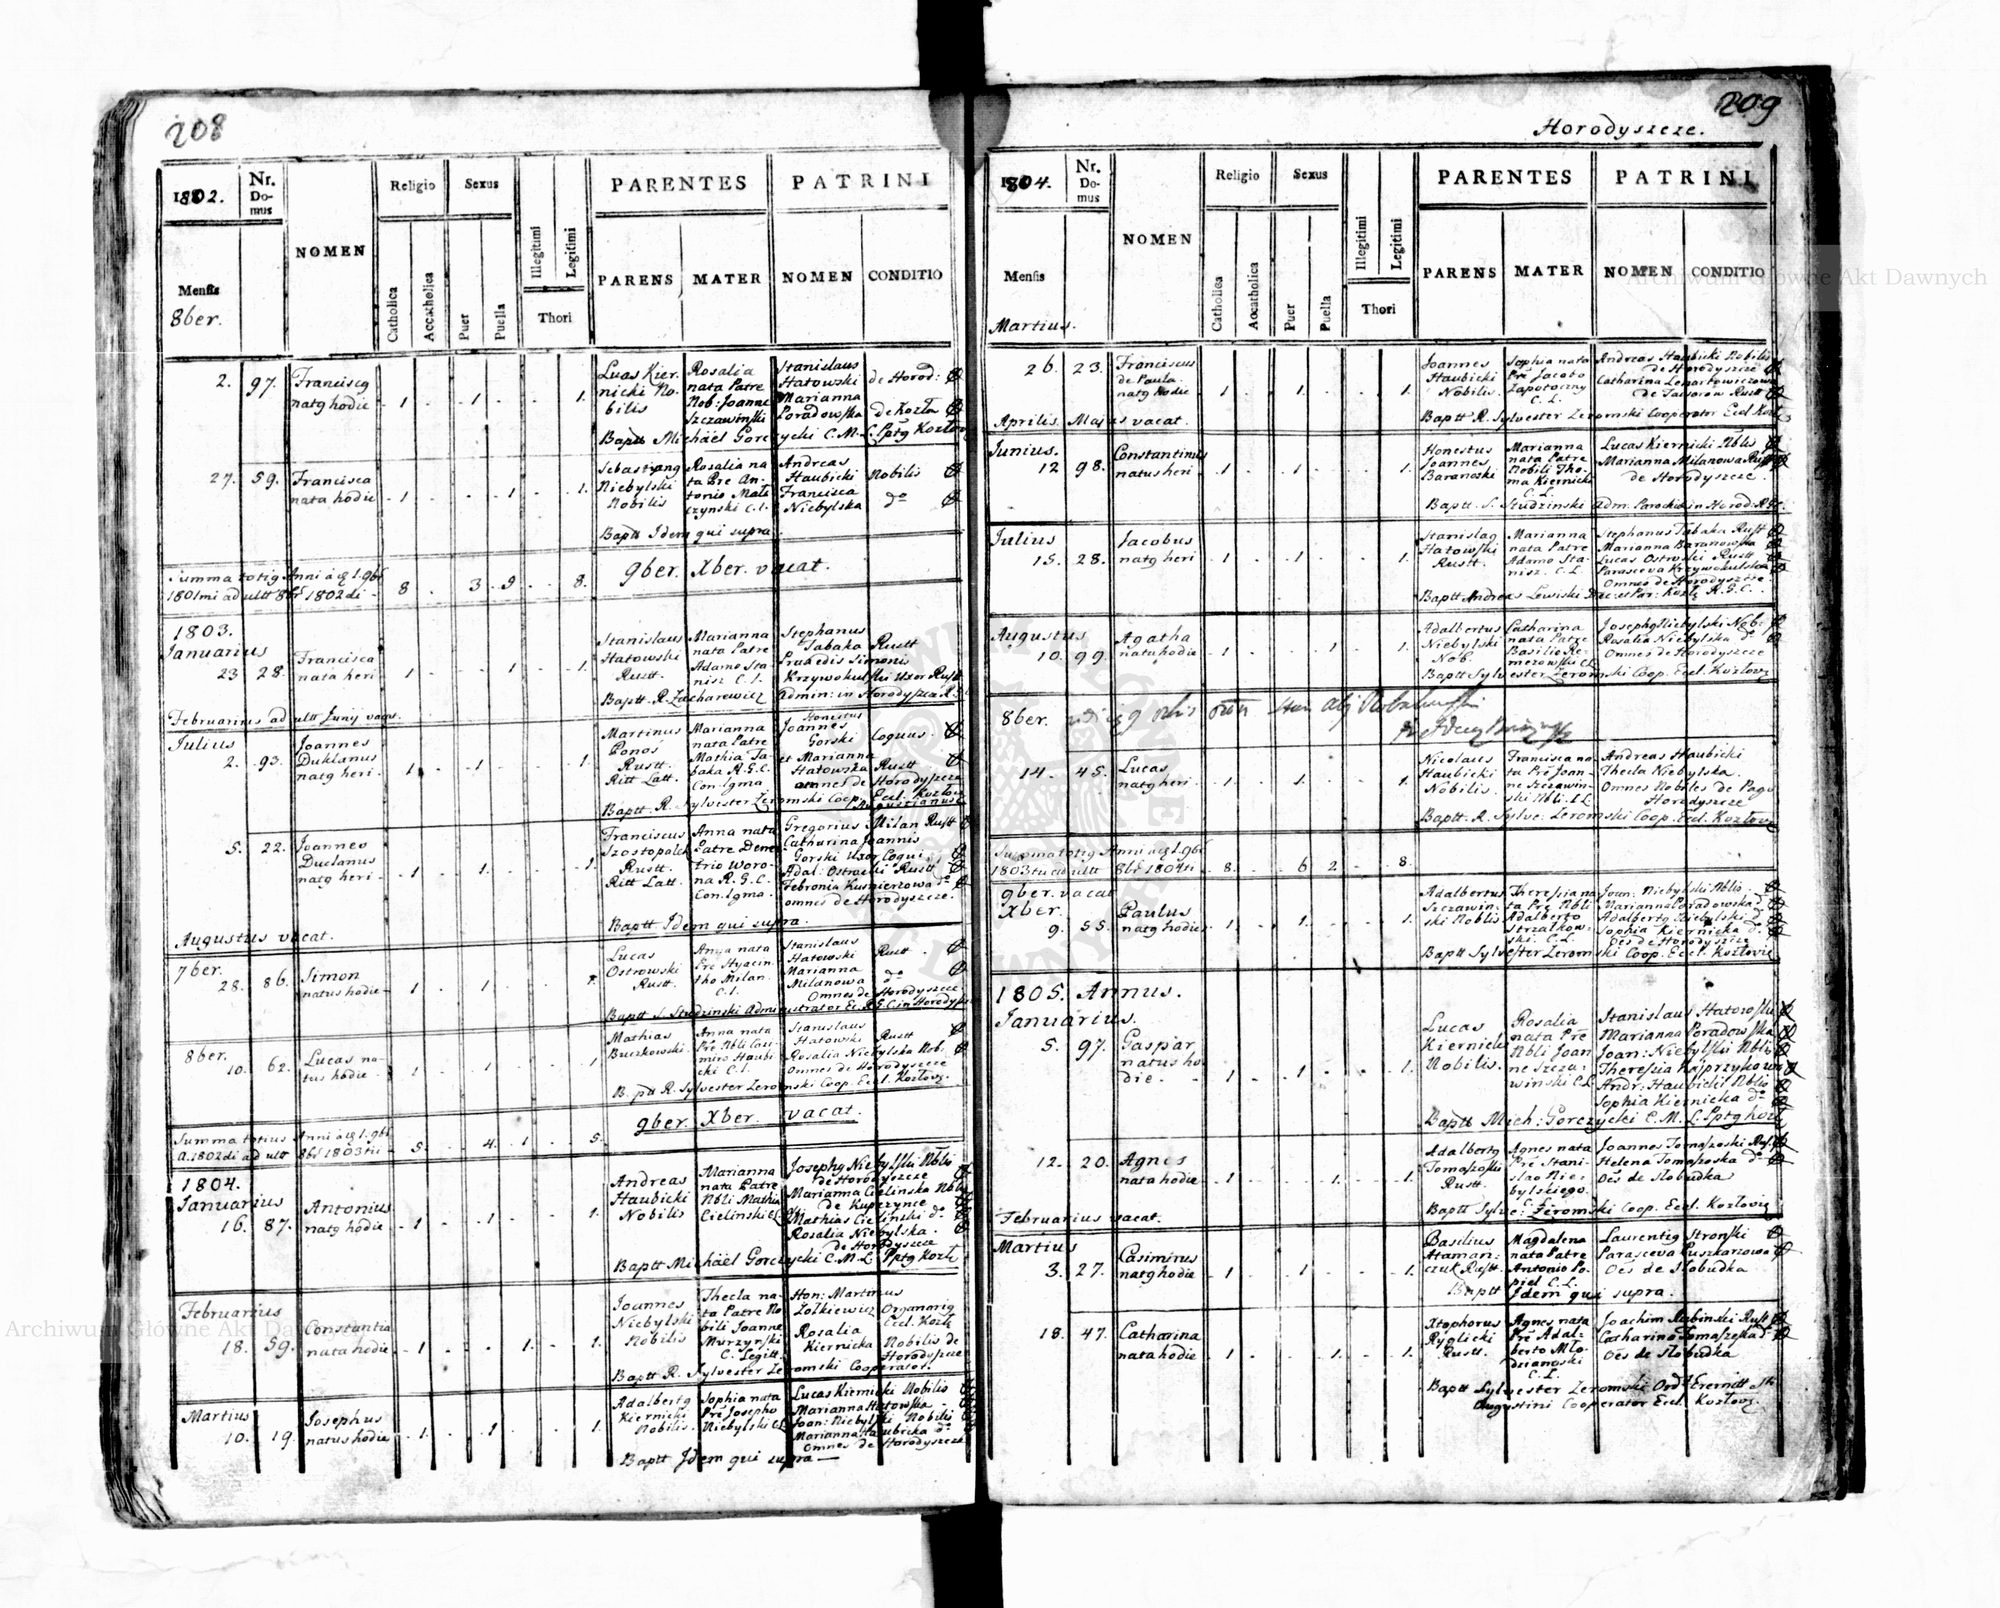 208
1802.
Nr. Domus
NOMEN
Religio
Sexus
PARENTES
PATRINI
Mensis
8ber.
Catholica
Accatholica
Puer
Puella
Illegitimi
Legitimi
Thori
PARENS
MATER
NOMEN
CONDITIO
2. 97. Franciscg natg hodie 1 1 1.
Lucas Kiernicki Nobilis
Rosalia nata Patre Nob: Joanne Szczawinski
Stanislaus Hatowski Marianna Poradowska
de Horod: de Kozła
Baptt Michäel Gorczycki C.M.L. Pptg Kozłow
27. 59. Francisca nata hodie 1 1. 1.
Sebastyang Niebylski Nobilis
Rosalia nata Pre Antonio Małaczynski C.L.
Andreas Haubicki Francisca Niebylska
Nobilis do
Baptt Idem qui supra.
Summa totig Anni a 1. 9br 1801mi ad ultt 8br 1802di 8 3 9 8.
9ber. Xber. vacat.
1803.
Januarius
23 28. Francisca nata heri 1 1 1.
Stanislaus Hatowski Rustt.
Marianna nata Patre Adamo Stanisz C.L.
Stephanus Tabaka Rustt Praxedis Simonis Krzywokulski Uxor Rustt
Baptt. R. Zacharewicz Admin: in Horodyszcze R.
Februarius ad ultt Junij vacat.
Julius
2. 93. Joannes Duklanus natg heri 1 1 1.
Martinus Ponos Rustt. Ritt Latt.
Marianna nata Patre Mathia Tabaka R.G.C. Con. lgma.
Honestus Joannes Gorski et Marianna Hatowska omnes de Horodyszcze
Coquus. Rustt
Baptt. R. Sylvester Zeromski Coop. Eccl. Kozłow Augustianus
5. 22. Joannes Duclanus natg heri 1 1. 1.
Franciscus Szostopalck Rustt. Ritt Latt.
Anna nata Patre Demetrio Worona R.G.C. Con. lgma.
Gregorius Milan Rustt Catharina Joannis Gorski Uxor Coqui, Adal: Ostrowski Rustt Febronia Kusnierzowa do omnes de Horodyszcze.
Baptt Idem qui supra.
Augustus vacat.
7ber.
28. 86. Simon natus hodie 1 1
Lucas Ostrowski Rustt.
Anna nata Pre Hyacintho Milan. C.L.
Stanislaus Hatowski Marianna Milanowa Omnes de Horodyszcze
Rustt. do
Baptt S. Studzinski Administrator Ec. R.G.C. in Horodysz
8ber.
10. 62. Lucas natus hodie 1 1 1
Mathias Buczkowski
Anna nata Pre Nbli Casimiro Haubicki C.L.
Stanislaus Hatowski Rustt Rosalia Niebylska Nob. Omnes de Horodyszcze
Baptt R. Sylvester Zeromski Coop. Eccl. Kozłow.
9ber. Xber. vacat.
Summa totius Anni a 1. 9br A. 1802di ad ultt 8br 1803tii 5 4. 1 5.
1804.
Januarius
16. 87. Antonius natg hodie 1 1 1.
Andreas Haubicki Nobilis
Marianna nata Patre Nbli Mathia Cielinski C.L.
Josephg Niebylski Nblis de Horodyszcze Marianna Cielinska Nbl. de Kupczynce Mathias Cielinski do Rosalia Niebylska de Horodyszcze
Baptt Michäel Gorczycki C.M.L. Pptg Kozł
Februarius
18. 59. Constantia nata hodie 1 1. 1.
Joannes Niebylski Nobilis
Thecla nata Patre Nobili Joanne Murzynski C. Legitt.
Hon: Martinus Zolkiewicz Organarig Eccl. Kozł Rosalia Kiernicka Nobilis de Horodyszcze
Baptt R. Sylvester Zeromski Cooperator.
Martius
10. 19. Josephus natus hodie 1 1 1.
Adalbertg Kiernicki Nobilis
Sophia nata Pre Josepho Niebylski C.L.
Lucas Kiernicki Nobilis Marianna Hatowska Joan: Niebylski Nobilis Marianna Haubicka do Omnes de Horodyszcze
Baptt Idem qui supra
209
Horodyszcze.
1804.
Nr. Domus
NOMEN
Religio
Sexus
PARENTES
PATRINI
Mensis
Martius.
Catholica
Acatholica
Puer
Puella
Illegitimi
Legitimi
Thori
PARENS
MATER
NOMEN
CONDITIO
26. 23. Franciscus de Paula. natg hodie 1 1. 1.
Joannes Haubicki Nobilis.
Sophia nata Pre Jacobo Zapotoczny C.L.
Andreas Haubicki Nobilis de Horodyszcze Catharina Lenartowiczowa de Taurow Rustt
Baptt R. Sylvester Zeromski Cooperator Eccl Kozł
Aprilis. Majus vacat.
Junius.
12 98. Constantinus natus heri 1 1 1.
Honestus Joannes Baranoski
Marianna nata Patre Nobili Thoma Kiernicki C.L.
Lucas Kiernicki Nblis Marianna Milanowa Rustt de Horodyszcze
Baptt. S. Studzinski Adm. Parochiæ in Horod: R.G.C.
Julius
15. 28. Jacobus natg heri 1 1 1.
Stanislag Hatowski Rustt.
Marianna nata Patre Adamo Stanisz. C.L.
Stephanus Tabaka Rustt Marianna Baranowska Lucas Ostrowski Rustt Parasceva Krzywokulska Omnes de Horodyszcze
Baptt Andreas Lewiski Dec: et Par: Kozł. R.G.C.
Augustus
10. 99. Agatha nata hodie 1 1 1.
Adalbertus Niebylski Nob.
Catharina nata Patre Basilio Remerowski C.L.
Josephg Niebylski Nob: Rosalia Niebylska do Omnes de Horodyszcze
Baptt Sylvester Zeromski Coop. Eccl. Kozłow
8ber.
14. 45. Lucas natg heri 1 1. 1.
Nicolaus Haubicki Nobilis.
Francisca nata Pre Joanne Szczawinski Nbli. C.L.
Andreas Haubicki Thecla Niebylska. Omnes Nobiles de Pago Horodyszcze
Baptt. R. Sylve. Zeromski Coop. Eccl. Kozłow
Summa totig Anni a 1. 9br 1803tii ad ultt 8br 1804ti 8. 6 2. 8.
9ber. vacat
Xber.
9. 55. Paulus natg hodie 1. 1. 1.
Adalbertus Szczawinski Noblis
Theresia nata Pre Nbli Adalberto Strzałkowski. C.L.
Joan: Niebylski Nblis Marianna Poradowska do Adalbertg Niebylski do Sophia Kiernicka do Oes de Horodyszcze
Baptt Sylvester Zeromski Coop. Eccl. Kozłowie
1805. Annus.
Januarius.
5. 97. Gaspar natus hodie. 1 1 1.
Lucas Kiernicki Nobilis.
Rosalia nata Pre Nbli Joanne Szczawinski C.L.
Stanislaus Hatowski Marianna Poradowska Joan: Niebylski Nblis Theresia Kasprzykowa Andr: Haubicki Nblis Sophia Kiernicka do
Baptt Mich: Gorczycki C.M.L. Pptg Kozł
12. 20. Agnes nata hodie 1 1. 1.
Adalbertg Tomaszoski Rustt.
Agnes nata Pre Stanislao Niebylskiego.
Joannes Tomaszoski Rus. Helena Tomaszoska do Oes de Slobudka
Baptt Sylve: Zeromski Coop. Eccl. Kozłowie
Februarius vacat.
Martius
3. 27. Casimirus natg hodie 1 1 1.
Basilius Atamanczuk Rustt.
Magdalena nata Patre Antonio Popiel C.L.
Laurentig Stronski Parasceva Puszkarzowa Oes de Slobudka
Baptt Idem qui supra.
18. 47. Catharina nata hodie 1 1. 1.
Xtophorus Ryglicki Rustt.
Agnes nata Pre Adalberto Młodzianoski C.L.
Joachim Rubinski Rustt Catharina Tomaszoska do Oes de Słobudka
Baptt Sylvester Zeromski Ord. Eremitt Sti Augustini Cooperator Eccl. Kozłow.
Archiwum Główne Akt Dawnych
Archiwum Główne Akt Dawnych